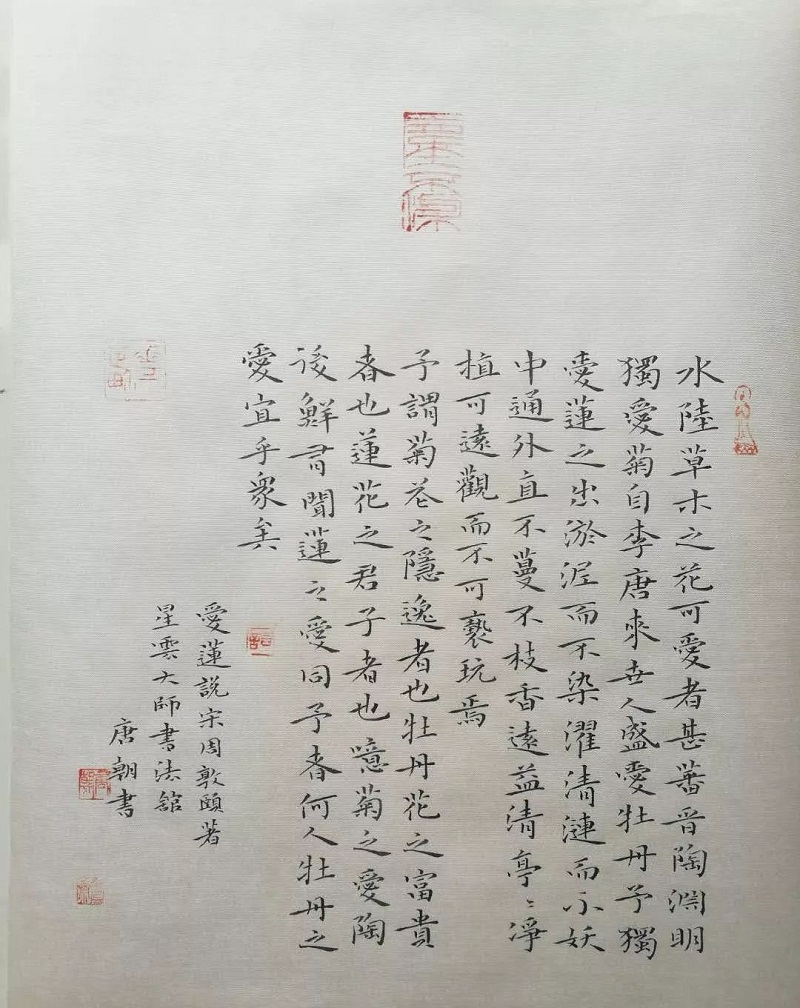 水陸草木之花可愛者甚蕃晉陶淵明
獨愛菊自李唐來世人盛愛牡丹予獨
愛蓮之出淤泥而不染濯清漣而不妖
中通外直不蔓不枝香遠益清亭〻凈
植可遠觀而不可褻玩焉
予謂菊花之隱逸者也牡丹花之富貴
者也蓮花之君子者也噫菊之愛陶
後鮮有聞蓮之愛同予者何人牡丹之
愛宜乎眾矣
愛蓮説宋周敦頤著
星雲大師書法舘
唐朝書